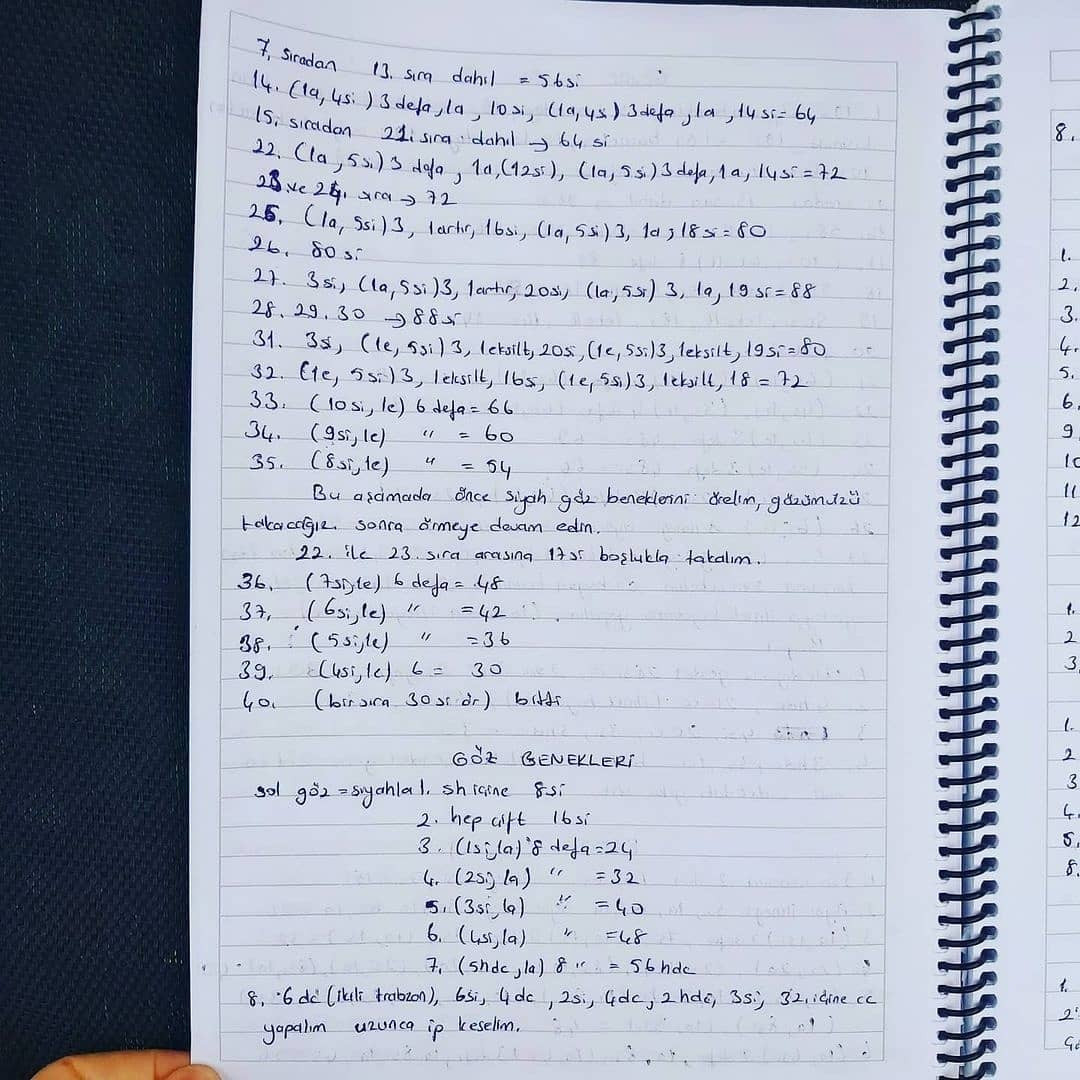 7. sıradan 13. sıra dahil = 56si
14. (1a, 4si) 3 defa, 1a, 10si, (1a, 4s) 3 defa, 1a, 14si = 64
15. sıradan 21. sıra dahil → 64 si
22. (1a, 5si) 3 defa, 1a, (12si), (1a, 5si) 3 defa, 1a, 14si = 72
23 ve 24. sıra → 72
25. (1a, 5si) 3, 1artır, 16si, (1a, 5si) 3, 1a, 18si = 80
26. 80si
27. 3si, (1a, 5si) 3, 1artır, 20si, (1a, 5si) 3, 1a, 19si = 88
28. 29. 30 → 88si
31. 3si, (1e, 5si) 3, 1eksilt, 20si, (1e, 5si) 3, 1eksilt, 19si = 80
32. (1e, 5si) 3, 1eksilt, 16s, (1e, 5si) 3, 1eksilt, 18 = 72
33. (10si, 1e) 6 defa = 66
34. (9si, 1e) " = 60
35. (8si, 1e) " = 54
Bu aşamada önce siyah göz beneklerini örelim, gözümüzü
takacağız. sonra örmeye devam edin.
22. ile 23. sıra arasına 17si boşlukla takalım.
36. (7si, 1e) 6 defa = 48
37. (6si, 1e) " = 42
38. (5si, 1e) " = 36
39. (4si, 1e) 6 = 30
40. (bir sıra 30si ör) bitti
GÖZ BENEKLERİ
sol göz = siyahla 1. sh içine 8si
2. hep çift 16si
3. (1si, 1a) 8 defa = 24
4. (2si, 1a) " = 32
5. (3si, 1a) " = 40
6. (4si, 1a) " = 48
7. (5hdc, 1a) 8 " = 56hdc
8. 6 dc (ikili trabzon), 6si, 4dc, 2si, 4dc, 2hdc, 3si, 32. içine cc
yapalım uzunca ip keselim.
8.
1.
2.
3.
4.
5.
6.
9
10
11
12
1.
2
3
1.
2
3
4.
5.
8.
1.
2.